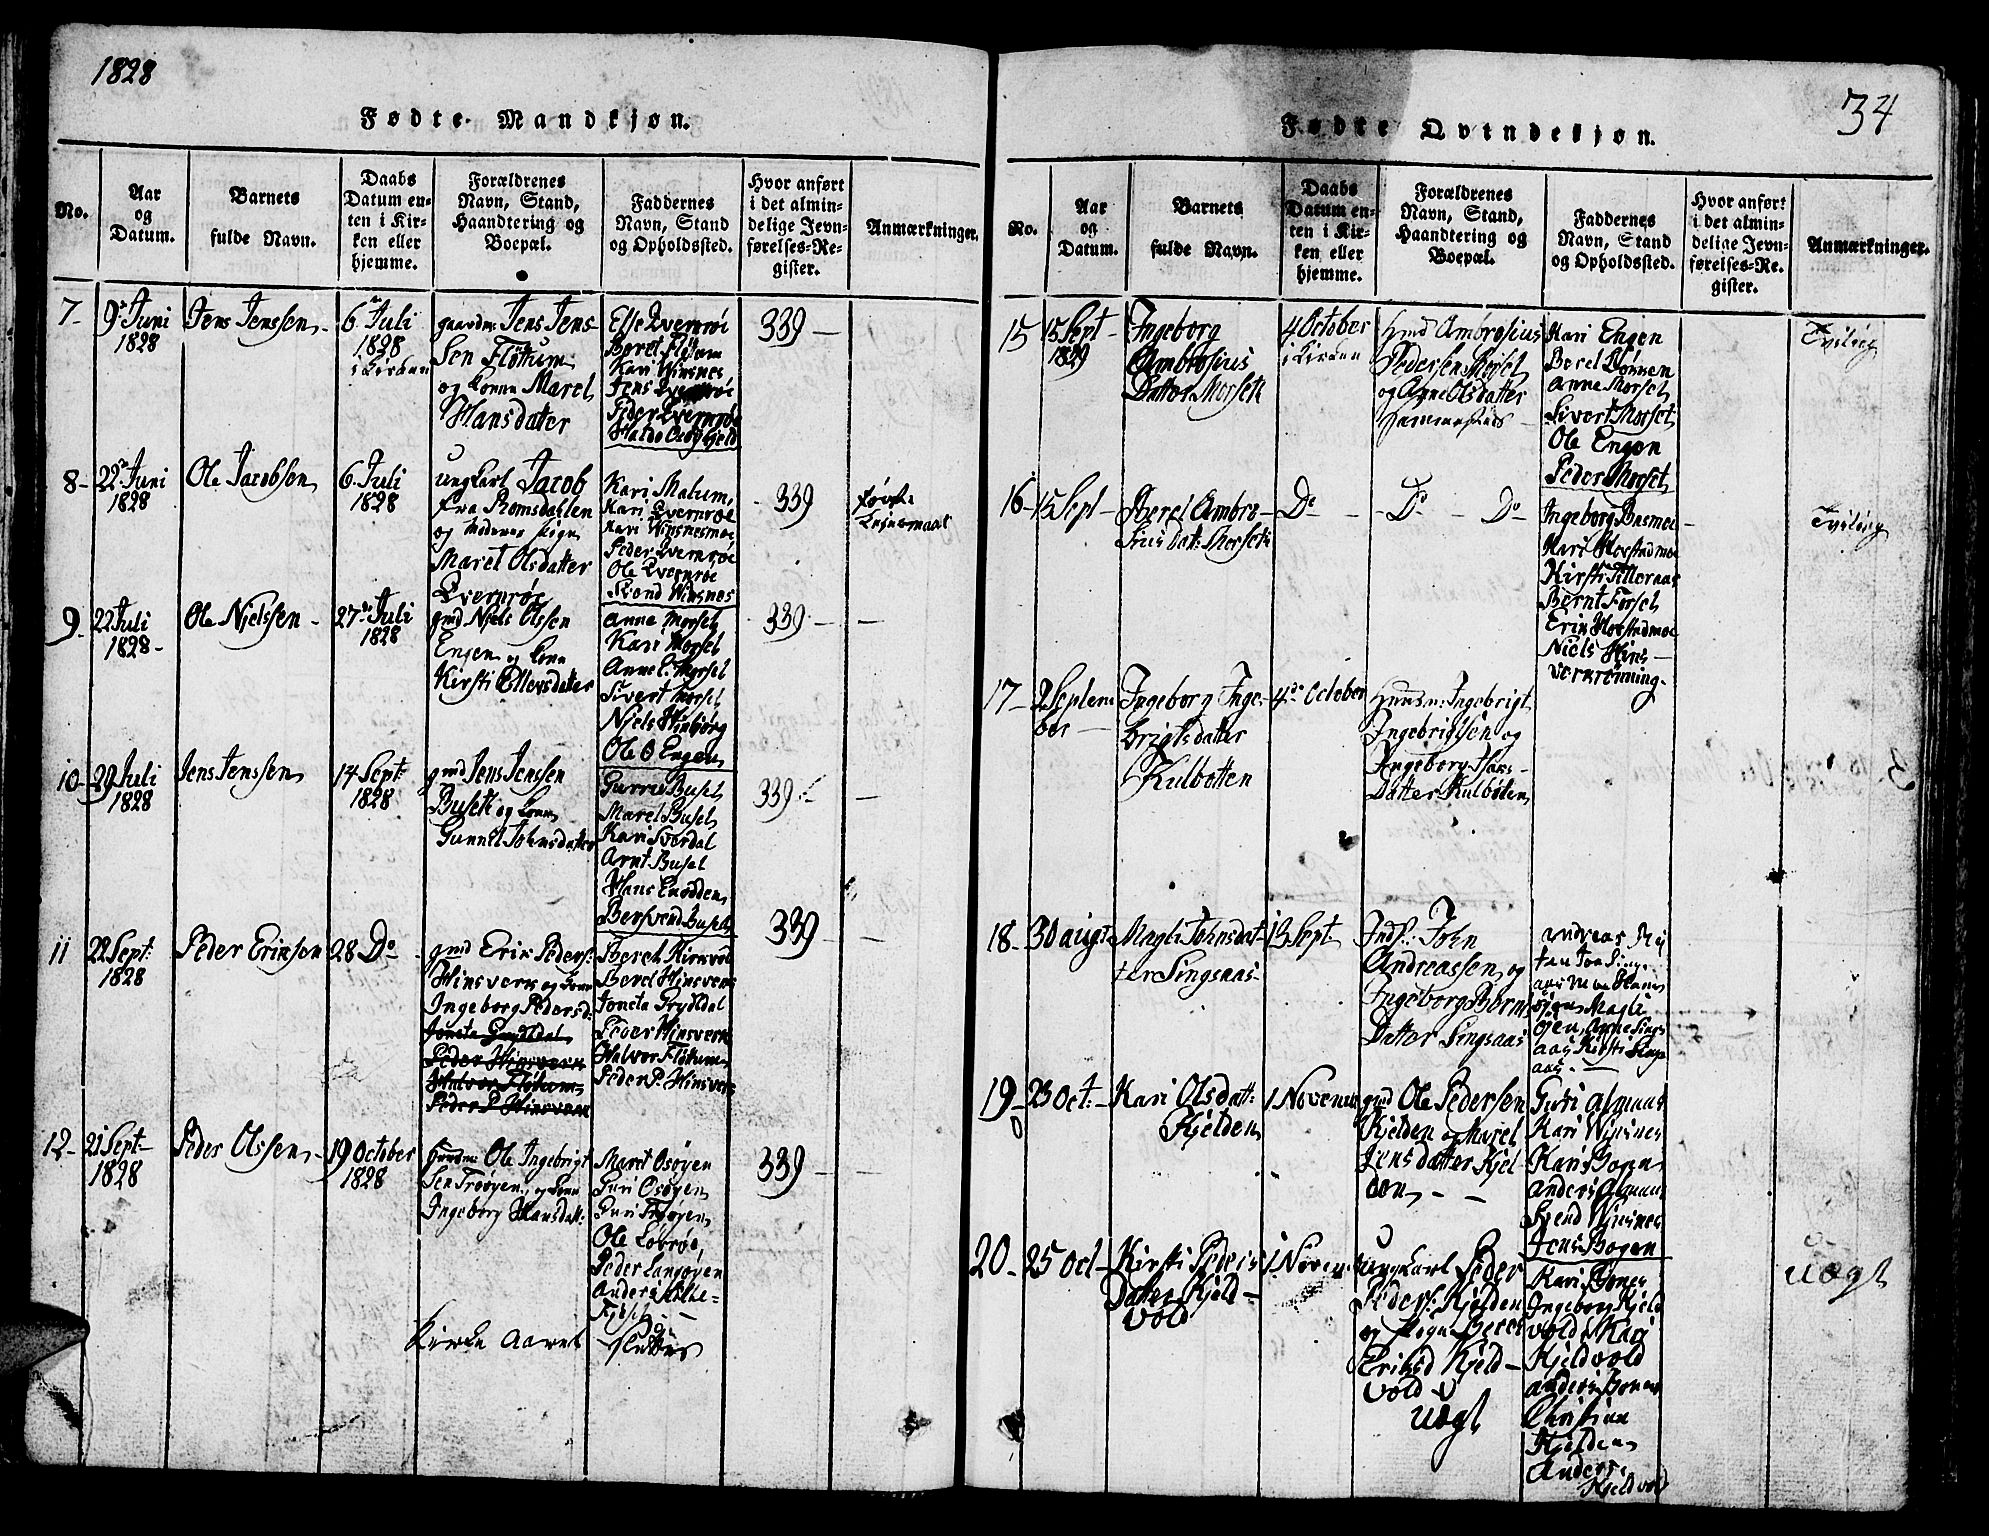 1828
Fødte Mandkjøn.
No.
Aar
og
Datum.
Barnets
fulde Navn.
Daabs
Datum en-
ten i Kir-
ken eller
hjemme.
Forældrenes
Navn, Stand,
Haandtering og
Boepæl.
Faddernes
Navn, Stand
og Opholdssted.
Hvor anført
i det almin-
delige Jevn-
førelses-Re-
gister.
Anmærkninger.
7-
9de Juni
1828
Jens Jenssen
6te Juli
1828
i Kirken
gaardm: Jens Jens-
sen Flöttum
og Konne Maret
Hansdatter
Beret Flöttum
Kari Winsnes
Jens Qvernröe
Peder Qvernröe
339 -
8-
22de Juni
1828
Ole Jacobsen
6 Juli
1828
ungkarl Jacob
fra Romsdahlen
og Pige
Maret Olsdatter
Qvernröe
Kari Malum
Kari Qvernröe
Kari Winsnesmoe
Peder Qvernröe
Ole Qvernröe
Svend Winsnes
339
9-
22 Juli
1828-
Ole Njelssen -
27de Juli
1828
gmd Njels Olssen
Engen og Kone
Kirsti Ellevsdatter
Anne Morset
Kari Morset
Anne E. Morset
Sivert Morset
Njels Hinbjörg
Ole O Engen
339 -
10-
29 Juli
1828
Jens Jenssen
14 Sept:
1828
gmd Jens Jenssen
Buseth og Kone
Gunnil Johnsdatter
Gurrie Buset
Maret Buset
Kari Svardal
Arnt Buset
Hans Enodden
Bersvend Buset
339 -
11
22 Sept:
1828
Peder Eriksen
28 Do
gmd Erik Peders:
Hinsverk og Kone
Ingeborg Pedersd:
Joneta Gryttdal
Peder Hinsverk
Halvor Flöttum
Peder P Hinsverk
Beret Hinsverk
Joneta Gryttdal
Peder Hinsverk
Halvor Flöttum
Peder P. Hinsverk
339
12-
21 Sept-
1828
Peder Olssen
19 October
1828
Ole Ingebrigt
sen Trööyen og Kone
Ingeborg Hansdatt:
Maret Osöyen
Guri Osöyen
Guri Tröyen
Ole Lövröe
Peder Langöyen
339
Kirke Aaret Sluttes
34
Fødte Qvindekjøn.
No.
Aar
og
Datum.
Barnets
fulde Navn.
Daabs
Datum en-
ten i Kir-
ken eller
hjemme.
Forældrenes
Navn, Stand,
Haandtering og
Boepæl.
Faddernes
Navn, Stand
og Opholdssted.
Hvor anført
i det almin-
delige Jevn-
førelses-Re-
gister.
Anmærkninger.
15
15 Sept
1829
Ingeborg
Ambrosius
Datter Morseth
4 October
i Kirken
Hmd Ambrosius
Pedersen Morset
og Anne Olsdatter
Kari Engen
Beret Bönnen
Anne Morset
Sivert Morset
Ole Engen
Peder Morset
Tviling
16-
15 Sept -
Beret Ambro-
sius Dat: Morseth
Do -
- Do - Do -
Ingeborg Busmoe
Kari Morstadmoe
Kirsti Tilleraas
Bernt Forset
Erik Morstadmoe
Niels Hins-
verkrönning
Tviling
17-
2 Septem
ber -
Ingeborg Inge-
brigtsdatter
Kulbotten
4de October
Huusm: Ingebrigt
Ingebrigtsen og
Ingeborg Hans-
Datter Kulboten
18-
30 augst
Magli Johnsdat-
ter Singsaas-
13 Sept
Inds: John
Andreassen og
Ingeborg Börns
Datter Singsaas
19-
23 Oct: -
Kari Olsdatt:
Kjelden
1 Novemb
gmd Ole Pedersen
Kjelden og Maret
Jensdatter Kjel
den - -
Guri Almaas
Kari Winsnes
Kari Bogen
Anders Almaas
Svend Winsnes
Jens Bogen
20-
25 Oct -
Kirsti Peders
Datter Kjeld-
vold
1 Novem
ungkarl Peder
Peders: Kjelden
og Pige Beret
Eriksd Kjeld-
vold
uægt
Kari Bones
Ingeborg Kjeld
vold Kari
Kjeldvold
Anders Bones
Christian
Kjelden
Anders
Kjeldvold
uægt